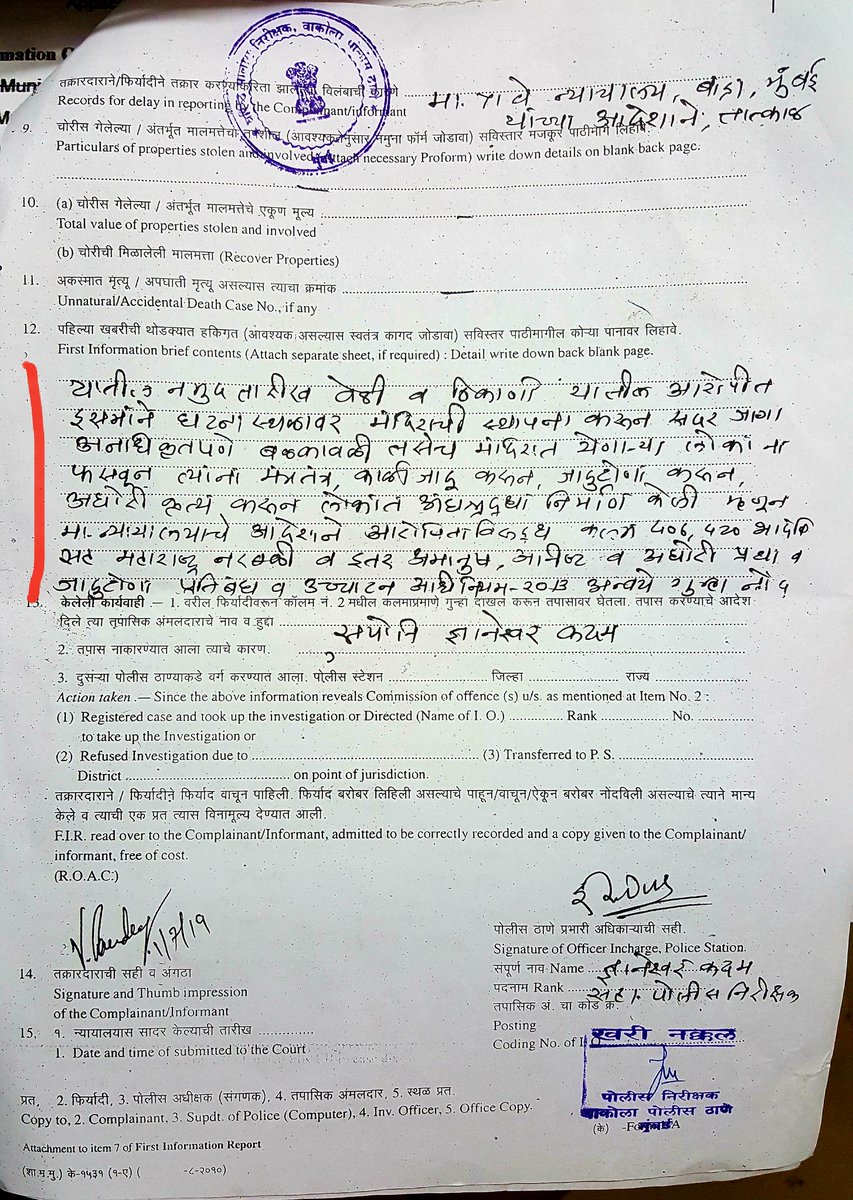 mation C
Muni
M
पोलीस निरीक्षक, वाकोला पोलीस ठाणे
मुंबई
तक्रारदाराने/फिर्यादीने तक्रार करण्याकरिता झालेल्या विलंबाची कारणे
मा. ७१ वे न्यायालय, बांद्रा, मुंबई
Records for delay in reporting the Complainant/informant
यांच्या आदेशाने, तात्काळ
9. चोरीस गेलेल्या / अंतर्भूत मालमत्तेचा तपशील (आवश्यकतेनुसार नमुना फॉर्म जोडावा) सविस्तर मजकूर पाठीमागे लिहावे
Particulars of properties stolen and involved (Attach necessary Proform) write down details on blank back page.
10. (a) चोरीस गेलेल्या / अंतर्भूत मालमत्तेचे एकूण मूल्य
Total value of properties stolen and involved
(b) चोरीची मिळालेली मालमत्ता (Recover Properties)
11. अकस्मात मृत्यू / अपघाती मृत्यू असल्यास त्याचा क्रमांक
Unnatural/Accidental Death Case No., if any
12. पहिल्या खबरीची थोडक्यात हकिगत (आवश्यक असल्यास स्वतंत्र कागद जोडावा) सविस्तर पाठीमागील कोऱ्या पानावर लिहावे.
First Information brief contents (Attach separate sheet, if required) : Detail write down back blank page.
यातील नमुद तारीख वेळी व ठिकाणी यातील आरोपीत
इसमाने घटनास्थळावर मंदिराची स्थापना करून सदर जागा
अनाधिकृतपणे बळकावली तसेच मंदिरात येणाऱ्या लोकांना
फसवून त्यांना मंत्रतंत्र, काळी जादू करून, जादुटोणा करून,
अघोरी कृत्य करून लोकांत अंधश्रद्धा निर्माण केली म्हणून
मा. न्यायालयाचे आदेशाने आरोपिताविरुद्ध कलम 406, 420 भादवि
सह महाराष्ट्र नरबळी व इतर अमानुष, अनिष्ट व अघोरी प्रथा व
जादुटोणा प्रतिबंध व उच्चाटन अधिनियम-2013 अन्वये गुन्हा नोंद
13. केलेली कार्यवाही — 1. वरील फिर्यादीवरून कॉलम नं. 2 मधील कलमाप्रमाणे गुन्हा दाखल करून तपासावर घेतला. तपास करण्याचे आदेश
दिले त्या तपासिक अंमलदाराचे नाव व हुद्दा
सपोनि ज्ञानेश्वर कदम
2. तपास नाकारण्यात आला त्याचे कारण.
3. दुसऱ्या पोलीस ठाण्याकडे वर्ग करण्यात आला. पोलीस स्टेशन जिल्हा राज्य
Action taken .— Since the above information reveals Commission of offence (s) u/s. as mentioned at Item No. 2 :
(1) Registered case and took up the investigation or Directed (Name of I. O.) Rank No.
to take up the Investigation or
(2) Refused Investigation due to (3) Transferred to P. S.
District on point of jurisdiction.
तक्रारदाराने / फिर्यादीने फिर्याद वाचून पाहिली. फिर्याद बरोबर लिहिली असल्याचे पाहून/वाचून/ऐकून बरोबर नोंदविली असल्याचे त्याने मान्य
केले व त्याची एक प्रत त्यास विनामूल्य देण्यात आली.
F.I.R. read over to the Complainant/Informant, admitted to be correctly recorded and a copy given to the Complainant/
informant, free of cost.
(R.O.A.C.)
1/7/19
पोलीस ठाणे प्रभारी अधिकाऱ्यांची सही.
Signature of Officer Incharge, Police Station.
14. तक्रारदाराची सही व अंगठा
Signature and Thumb impression
of the Complainant/Informant
संपूर्ण नाव Name ज्ञानेश्वर कदम
पदनाम Rank सहा. पोलीस निरीक्षक
तपासिक अं. चा कोड क्र.
Posting
Coding No. of I.O.
15. १. न्यायालयास सादर केल्याची तारीख
1. Date and time of submitted to the Court.
खरी नक्कल
पोलीस निरीक्षक
वाकोला पोलीस ठाणे
मुंबई
प्रत, 2. फिर्यादी, 3. पोलीस अधीक्षक (संगणक), 4. तपासिक अंमलदार, 5. स्थळ प्रत.
Copy to, 2. Complainant, 3. Supdt. of Police (Computer), 4. Inv. Officer, 5. Office Copy.
Attachment to item 7 of First Information Report
(शा.म.मु.) के-१५३१ (१-ए) ( -८-२०१०)